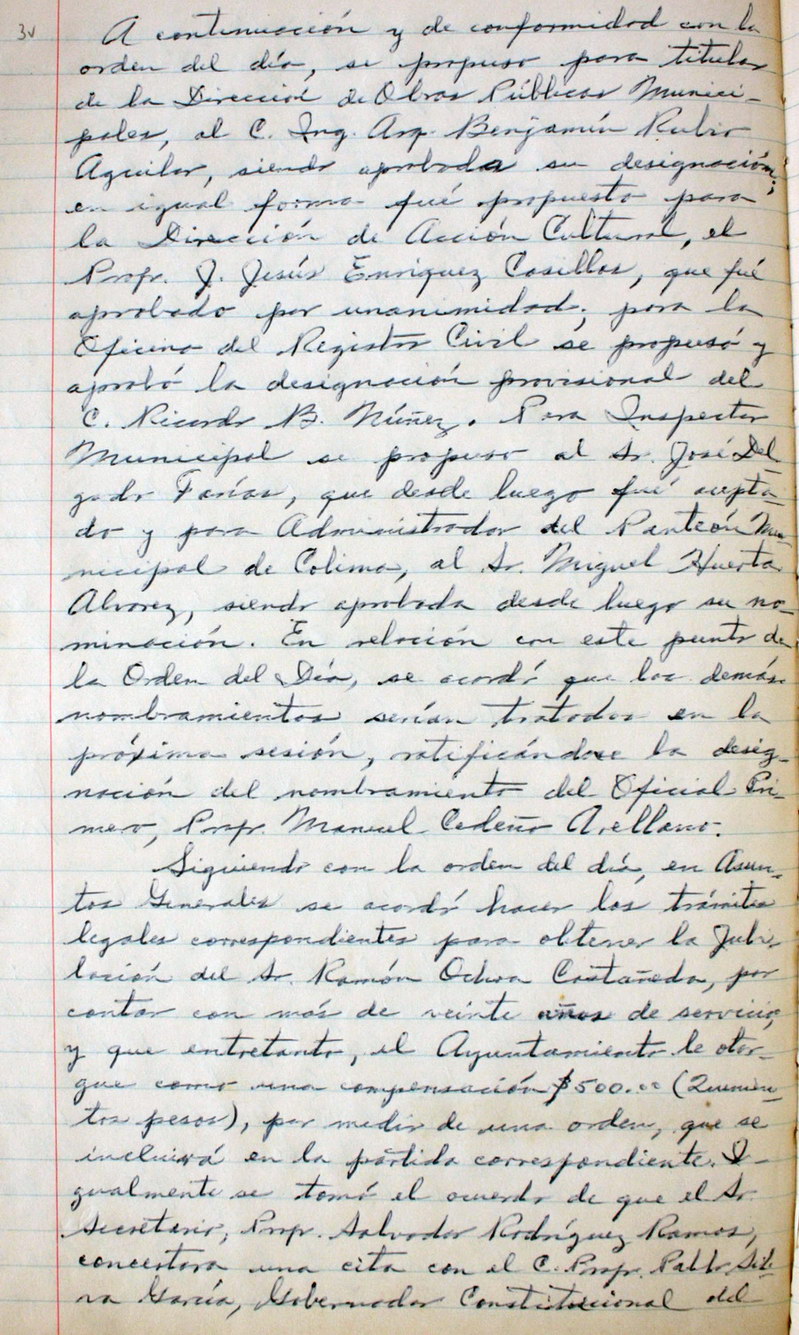 3v
A continuación y de conformidad con la
orden del día, se propuso para titular
de la Dirección de Obras Públicas Munici-
pales, al C. Ing. Arq. Benjamín Rubio
Aguilar, siendo aprobada su designación;
en igual forma fué propuesto para
la Dirección de Acción Cultural, el
Profr. J. Jesús Enríquez Casillas, que fué
aprobado por unanimidad; para la
Oficina del Registro Civil se propusó y
aprobó la designación provisional del
C. Ricardo B. Núñez. Para Inspector
Municipal se propuso al Sr. José Del
gado Farías, que desde luego fué acepta-
do y para Administrador del Panteón Mu-
nicipal de Colima, al Sr. Miguel Huerta
Alvarez, siendo aprobada desde luego su no-
minación. En relación con este punto de
la Orden del Día, se acordó que los demás
nombramientos serían tratados en la
próxima sesión, ratificándose la desig-
nación del nombramiento del Oficial Pri-
mero, Profr. Manuel Cedeño Arellano.
Siguiendo con la orden del día, en Asun-
tos Generales se acordó hacer los trámites
legales correspondientes para obtener la Jubi-
lación del Sr. Ramón Ochoa Castañeda, por
contar con más de veinte años de servicio,
y que entretanto, el Ayuntamiento le otor-
gue como una compensación $500.00 (Quinien-
tos pesos), por medio de una orden, que se
incluirá en la partida correspondiente. I-
gualmente se tomó el acuerdo de que el Sr.
Secretario, Profr. Salvador Rodríguez Ramos,
concertara una cita con el C. Profr. Pablo Sil-
va García, Gobernador Constitucional del